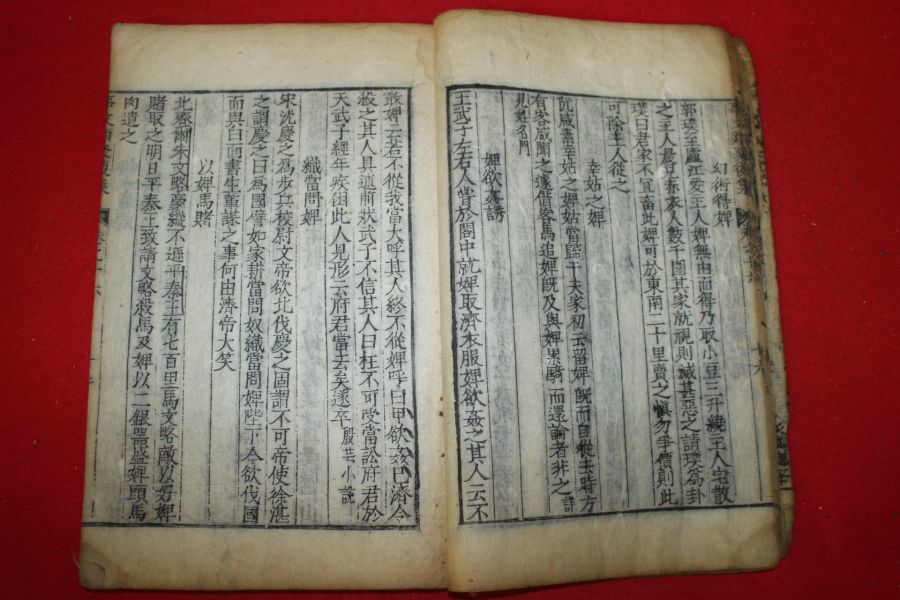 幻術得婢
郭璞至廬江愛主人婢無由而得乃取小豆三升繞主人宅散
之主人晨見赤衣人數千圍其家就視則滅甚惡之請璞爲卦
璞曰君家不宜畜此婢可於東南二十里賣之愼勿爭價則此
可除主人從之
幸姑之婢
阮咸素幸姑之婢姑當歸于夫家初云留婢旣而自從去時方
有客咸聞之遽借客馬追婢旣及與婢累騎而還論者非之詳
見姓名門
婢欲姦誘
王武子左右人嘗於閣中就婢取濟衣服婢欲姦之其人云不
敢婢云若不從我當大呼其人終不從婢呼曰甲欲姦已濟令
殺之其人具述前狀武子不信其人曰枉不可受當訟府君於
天武子經年疾困此人見形云府君當去矣遂卒 殷芸小說
織當問婢
宋沈慶之爲步兵校尉文帝欲北伐慶之固謂不可帝使徐湛
之謂慶之曰爲國譬如家耕當問奴織當問婢陛下今欲伐國
而與白面書生軰謀之事何由濟帝大笑
以婢馬賭
北齊謝朱文略豪縱不遜平秦王有七百里馬文略敵以好婢
賭取之明日平秦王致請文略殺馬及婢以二銀器盛婢頭馬
肉遺之